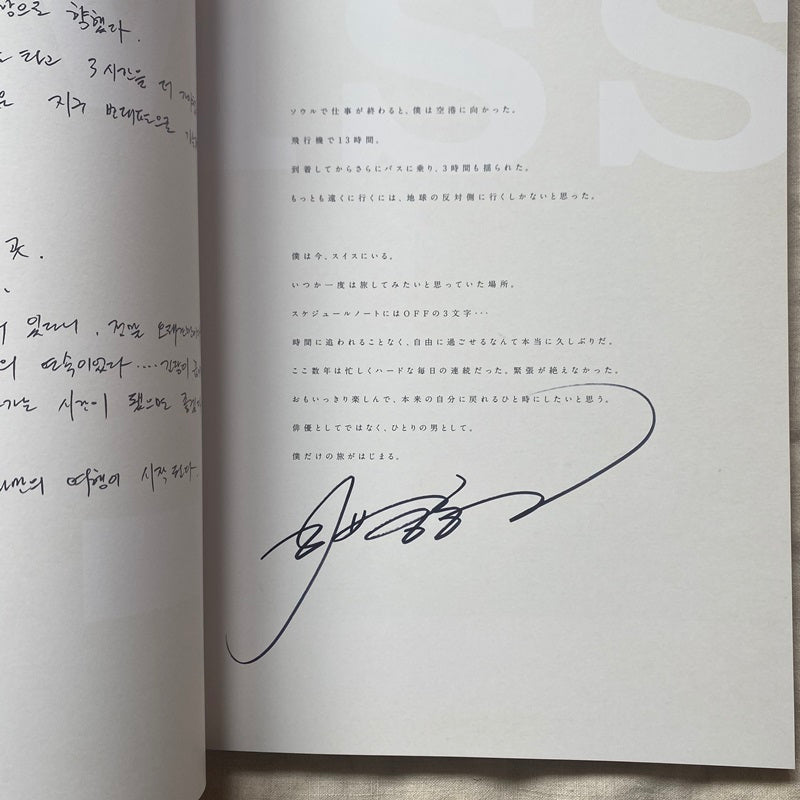 으로 향했다.
타고 3시간을 더
지구 반대편으로
곳.
있다니. 정말 오래간만
의 연속이었다....긴장이
가는 시간이 됐으면 좋겠
만의 여행이 시작된다.
SS
ソウルで仕事が終わると、僕は空港に向かった。
飛行機で13時間。
到着してからさらにバスに乗り、3時間も揺られた。
もっとも遠くに行くには、地球の反対側に行くしかないと思った。
僕は今、スイスにいる。
いつか一度は旅してみたいと思っていた場所。
スケジュールノートにはOFFの3文字･･･
時間に追われることなく、自由に過ごせるなんて本当に久しぶりだ。
ここ数年は忙しくハードな毎日の連続だった。緊張が絶えなかった。
おもいっきり楽しんで、本来の自分に戻れるひと時にしたいと思う。
俳優としてではなく、ひとりの男として。
僕だけの旅がはじまる。